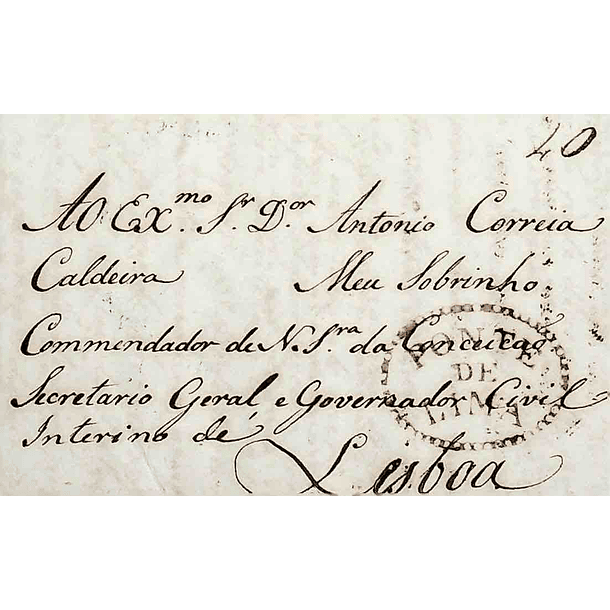 40
Ao Ex.mo Sr. D.or Antonio Correia
Caldeira Meu Sobrinho
Commendador de N. Sra da Conceicao
Secretario Geral e Governador Civil
Interino dé
Lesboa
PONTE
DE
LIMA